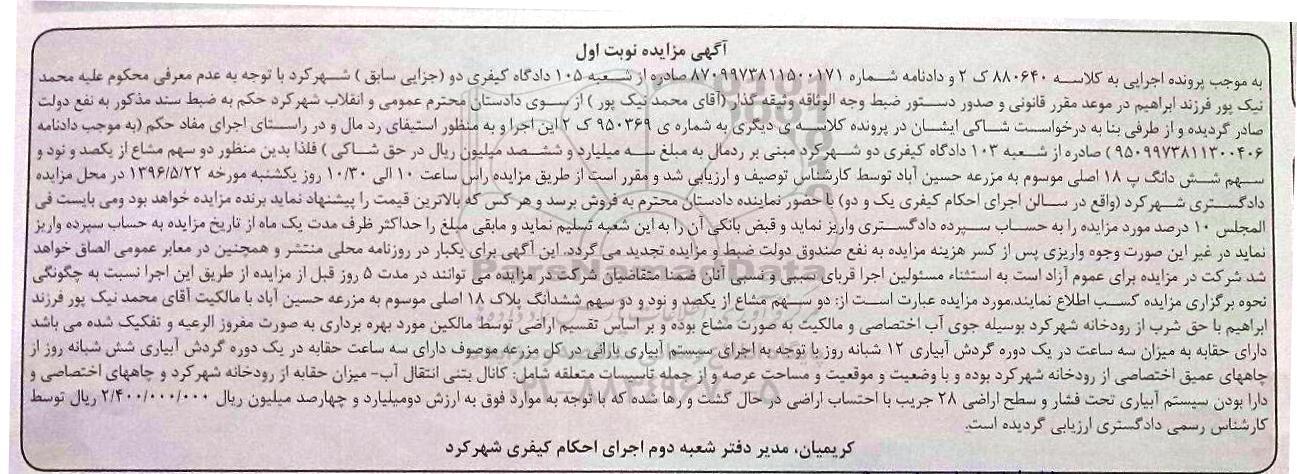 آگهی مزایده نوبت اول
به موجب پرونده اجرایی به کلاسه ۸۸۰۶۴۰ ک ۲ و دادنامه شماره ۸۷۰۹۹۷۳۸۱۱۵۰۰۱۷۱ صادره از شعبه ۱۰۵ دادگاه کیفری دو (جزایی سابق) شهرکرد با توجه به عدم معرفی محکوم علیه محمد
نیک پور فرزند ابراهیم در موعد مقرر قانونی و صدور دستور ضبط وجه الوثاقه وثیقه گذار (آقای محمد نیک پور) از سوی دادستان محترم عمومی و انقلاب شهرکرد حکم به ضبط سند مذکور به نفع دولت
صادر گردیده و از طرفی بنا به درخواست شاکی ایشان در پرونده کلاسه ی دیگری به شماره ی ۹۵۰۳۶۹ ک ۲ این اجرا و به منظور استیفای رد مال و در راستای اجرای مفاد حکم (به موجب دادنامه
۹۵۰۹۹۷۳۸۱۱۳۰۰۴۰۶) صادره از شعبه ۱۰۳ دادگاه کیفری دو شهرکرد مبنی بر ردمال به مبلغ سه میلیارد و ششصد میلیون ریال در حق شاکی) فلذا بدین منظور دو سهم مشاع از یکصد و نود و دو
سهم شش دانگ پ ۱۸ اصلی موسوم به مزرعه حسین آباد توسط کارشناس توصیف و ارزیابی شد و مقرر است از طریق مزایده راس ساعت ۱۰ الی ۱۰/۳۰ روز یکشنبه مورخه ۱۳۹۶/۵/۲۲ در محل مزایده
دادگستری شهرکرد (واقع در سالن اجرای احکام کیفری یک و دو) با حضور نماینده دادستان محترم به فروش برسد و هر کس که بالاترین قیمت را پیشنهاد نماید برنده مزایده خواهد بود ومی بایست فی
المجلس ۱۰ درصد مورد مزایده را به حساب سپرده دادگستری واریز نماید و قبض بانکی آن را به این شعبه تسلیم نماید و مابقی مبلغ را حداکثر ظرف مدت یک ماه از تاریخ مزایده به حساب سپرده واریز
نماید در غیر این صورت وجوه واریزی پس از کسر هزینه مزایده به نفع صندوق دولت ضبط و مزایده تجدید می گردد. این آگهی برای یکبار در روزنامه محلی منتشر و همچنین در معابر عمومی الصاق خواهد
شد شرکت در مزایده برای عموم آزاد است به استثناء مسئولین اجرا قربای سببی و نسبی آنان ضمنا متقاضیان شرکت در مزایده می توانند در مدت ۵ روز قبل از مزایده از طریق این اجرا نسبت به چگونگی
نحوه برگزاری مزایده کسب اطلاع نمایند.مورد مزایده عبارت است از: دو سهم مشاع از یکصد و نود و دو سهم ششدانگ پلاک ۱۸ اصلی موسوم به مزرعه حسین آباد با مالکیت آقای محمد نیک پور فرزند
ابراهیم با حق شرب از رودخانه شهرکرد بوسیله جوی آب اختصاصی و مالکیت به صورت مشاع بوده و بر اساس تقسیم اراضی توسط مالکین مورد بهره برداری به صورت مفروز الرعیه و تفکیک شده می باشد
دارای حقابه به میزان سه ساعت در یک دوره گردش آبیاری ۱۲ شبانه روز با توجه به اجرای سیستم آبیاری بارانی در کل مزرعه موصوف دارای سه ساعت حقابه در یک دوره گردش آبیاری شش شبانه روز از
چاههای عمیق اختصاصی از رودخانه شهرکرد بوده و با وضعیت و موقعیت و مساحت عرصه و از جمله تأسیسات متعلقه شامل: کانال بتنی انتقال آب- میزان حقابه از رودخانه شهرکرد و چاههای اختصاصی و
دارا بودن سیستم آبیاری تحت فشار و سطح اراضی ۲۸ جریب با احتساب اراضی در حال گشت و رها شده که با توجه به موارد فوق به ارزش دومیلیارد و چهارصد میلیون ریال ۲/۴۰۰/۰۰۰/۰۰۰ ریال توسط
کارشناس رسمی دادگستری ارزیابی گردیده است.
کریمیان، مدیر دفتر شعبه دوم اجرای احکام کیفری شهرکرد